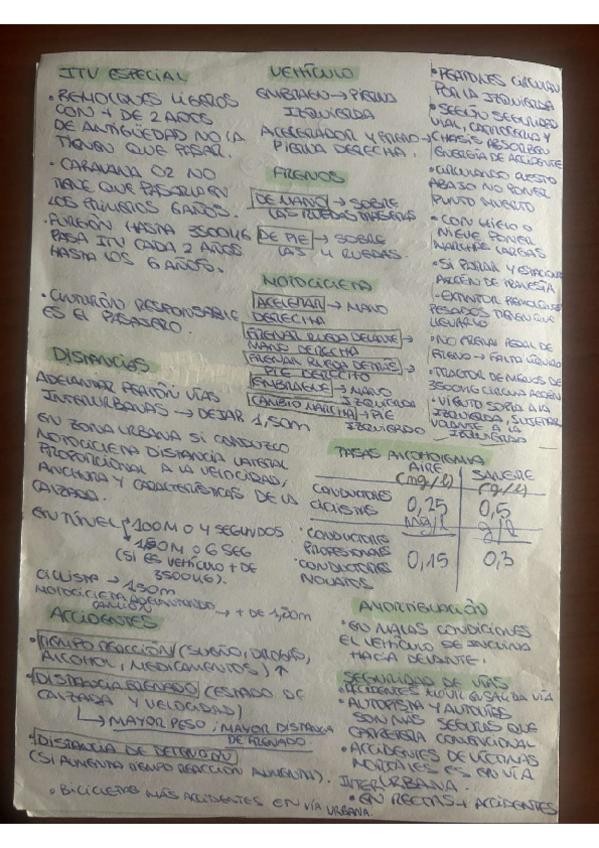 ITV ESPECIAL
• REMOLQUES LIGEROS
CON + DE 2 AÑOS
DE ANTIGÜEDAD NO LA
TIENEN QUE PASAR.
• CARAVANA O2 NO
TIENE QUE PASARLA EN
LOS PRIMEROS 6 AÑOS.
• FURGÓN HASTA 3500KG
PASA ITV CADA 2 AÑOS
HASTA LOS 6 AÑOS.
• CINTURÓN RESPONSABLE
ES EL PASAJERO.
DISTANCIAS
ADELANTAR PEATÓN VÍAS
INTERURBANAS → DEJAR 1,50m
EN ZONA URBANA SI CONDUZCO
MOTOCICLETA DISTANCIA LATERAL
PROPORCIONAL A LA VELOCIDAD,
ANCHURA Y CARACTERÍSTICAS DE LA
CALZADA.
EN TÚNEL → 100M O 4 SEGUNDOS
→ 150M O 6 SEG
(SI ES VEHÍCULO + DE
3500KG).
CICLISTA → 1,50m
MOTOCICLETA ADELANTANDO
CAMIÓN → + DE 1,50m
ACCIDENTES
• TIEMPO REACCIÓN (SUEÑO, DROGAS,
ALCOHOL, MEDICAMENTOS) ↑
• DISTANCIA FRENADO (ESTADO DE
CALZADA Y VELOCIDAD)
→ MAYOR PESO, MAYOR DISTANCIA
DE FRENADO.
• DISTANCIA DE DETENCIÓN
(SI AUMENTA TIEMPO REACCIÓN AUMENTA).
• BICICLETAS MÁS ACCIDENTES EN VÍA URBANA.
VEHÍCULO
EMBRAGUE → PIERNA
IZQUIERDA
ACELERADOR Y FRENO →
PIERNA DERECHA.
FRENOS
DE MANO → SOBRE
LAS RUEDAS TRASERAS
DE PIE → SOBRE
LAS 4 RUEDAS.
MOTOCICLETA
ACELERAR → MANO
DERECHA
FRENAR RUEDA DELANTE →
MANO DERECHA
FRENAR RUEDA DETRÁS →
PIE DERECHO
EMBRAGUE → MANO
IZQUIERDA
CAMBIO MARCHA → PIE
IZQUIERDO
• PEATONES CIRCULAN
POR LA IZQUIERDA
• SEGÚN SEGURIDAD
VIAL, CARROCERÍA Y
CHASIS ABSORBEN
ENERGÍA DE ACCIDENTE
• CIRCULANDO CUESTA
ABAJO NO PONER
PUNTO MUERTO
• CON HIELO O
NIEVE PONER
MARCHAS LARGAS
• SI PARAR Y ESTACIONAR
ARCÉN DE TRAVESÍA
• EXTINTOR REMOLQUES
PESADOS TIENEN QUE
LLEVARLO
• NO FRENA PEDAL DE
FRENO → FALTA LÍQUIDO
• TRACTOR DE MENOS DE
3500KG CIRCULA ARCÉN
• VIENTO SOPLA A LA
IZQUIERDA, SUJETAR
VOLANTE A LA
IZQUIERDA
TASAS ALCOHOLEMIA
AIRE SANGRE
(mg/l) (g/l)
CONDUCTORES
CICLISTAS 0,25 0,5
mg/l g/l
• CONDUCTORES
PROFESIONALES
• CONDUCTORES 0,15 0,3
NOVATOS
AMORTIGUACIÓN
• EN MALAS CONDICIONES
EL VEHÍCULO SE INCLINA
HACIA DELANTE.
SEGURIDAD DE VÍAS
• AUTOPISTA Y AUTOVÍAS
SON MÁS SEGURAS QUE
CARRETERA CONVENCIONAL
• ACCIDENTES DE VÍCTIMAS
MORTALES ES EN VÍA
INTERURBANA.
• EN RECTAS + ACCIDENTES